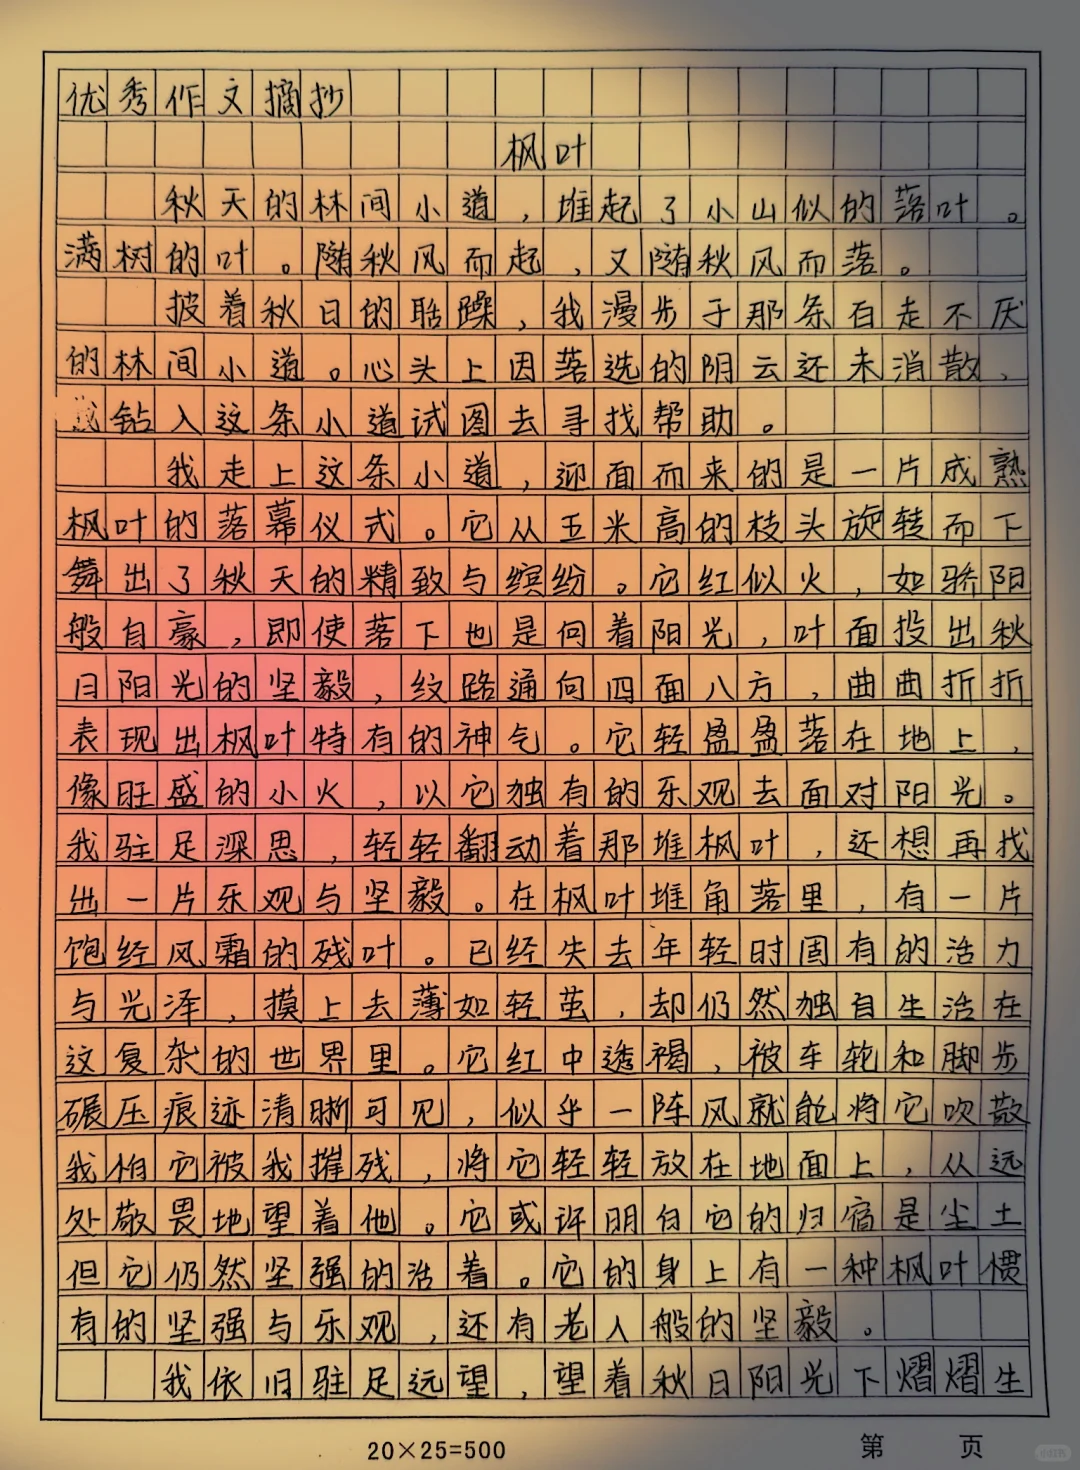 优秀作文摘抄
枫叶
秋天的林间小道，堆起了小山似的落叶。
满树的叶。随秋风而起，又随秋风而落。
披着秋日的聒躁，我漫步于那条百走不厌
的林间小道。心头上因落选的阴云还未消散，
我钻入这条小道试图去寻找帮助。
我走上这条小道，迎面而来的是一片成熟
枫叶的落幕仪式。它从五米高的枝头旋转而下
舞出了秋天的精致与缤纷。它红似火，如骄阳
般自豪，即使落下也是向着阳光，叶面投出秋
日阳光的坚毅，纹路通向四面八方，曲曲折折
表现出枫叶特有的神气。它轻盈盈落在地上，
像旺盛的小火，以它独有的乐观去面对阳光。
我驻足深思，轻轻翻动着那堆枫叶，还想再找
出一片乐观与坚毅。在枫叶堆角落里，有一片
饱经风霜的残叶。已经失去年轻时固有的活力
与光泽，摸上去薄如轻茧，却仍然独自生活在
这复杂的世界里。它红中透褐，被车轮和脚步
碾压痕迹清晰可见，似乎一阵风就能将它吹散
我怕它被我摧残，将它轻轻放在地面上，从远
处敬畏地望着他。它或许明白它的归宿是尘土
但它仍然坚强的活着。它的身上有一种枫叶惯
有的坚强与乐观，还有老人般的坚毅。
我依旧驻足远望，望着秋日阳光下熠熠生
20×25=500
第 页